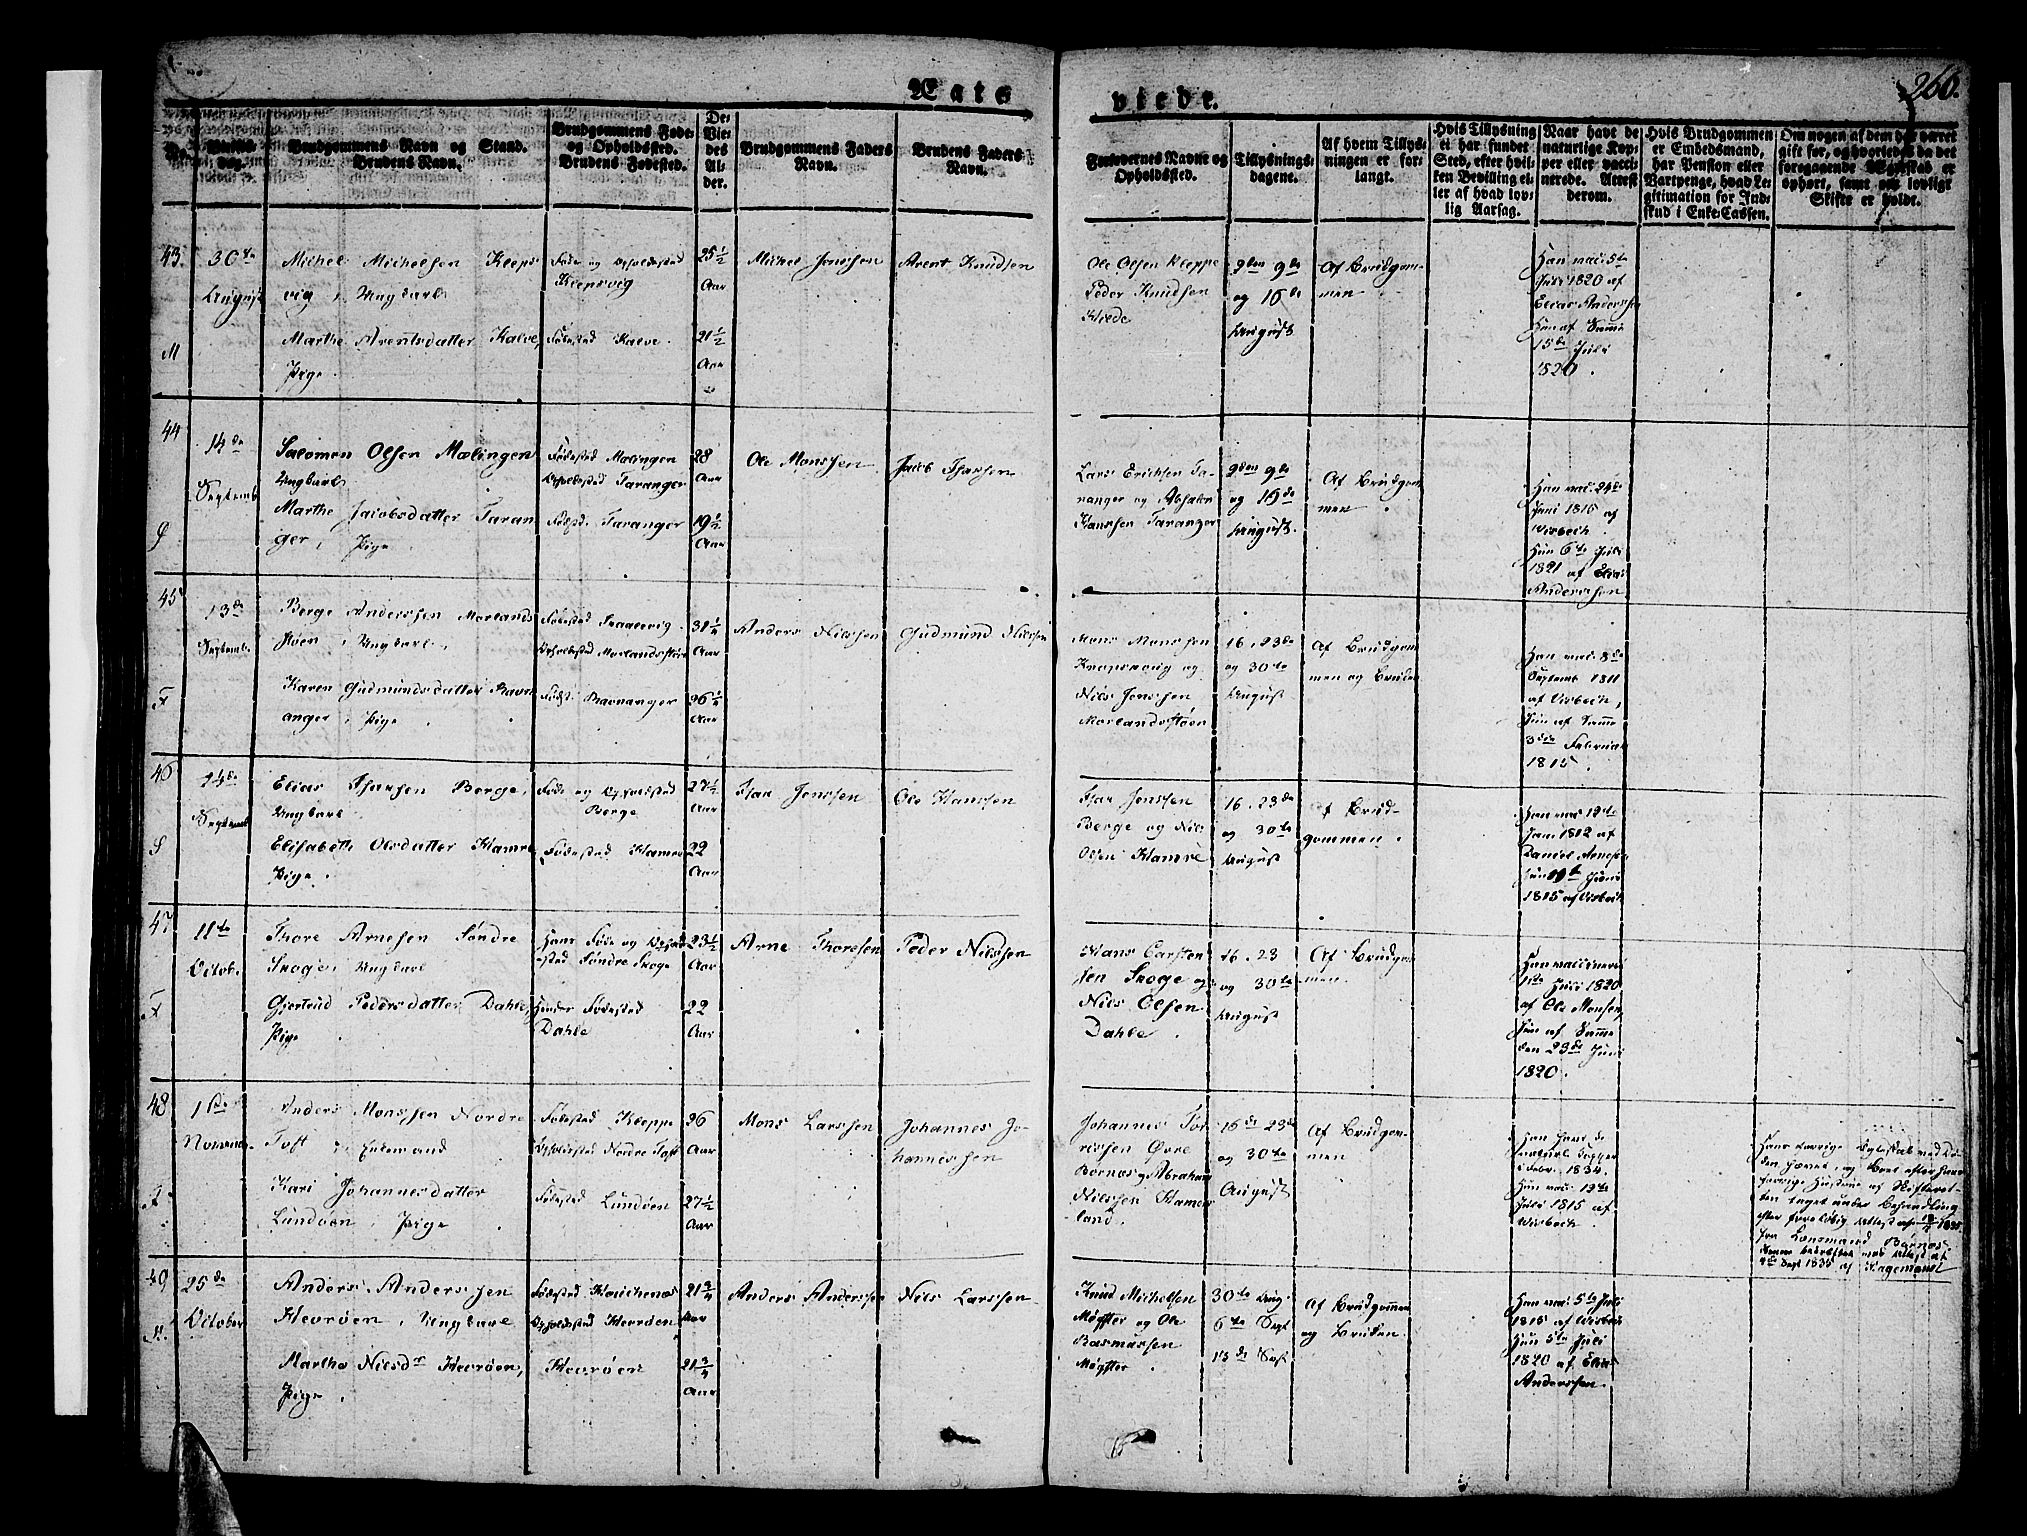 Vats
viede.
260.
Brudgommens Navn og Stand.
Brudens Navn.
Brudgommens Føde-
og Opholdssted.
Brudens Fødested.
De
Vie-
des
Al-
der.
Brudgommens Faders
Navn.
Brudens Faders
Navn.
Forlovernes Navne og
Opholdssted.
Tillysnings-
dagene.
Af hvem Tillys-
ningen er for-
langt.
Hvis Tillysning
ei har fundet
Sted, efter hvil-
ken Bevilling el-
ler af hvad lov-
lig Aarsag.
Naar havt de
naturlige Kop-
per eller vacci-
nerede. Attest
derom.
Hvis Brudgommen
er Embedsmand,
har Pension eller
Vartpenge, hvad Le-
gitimation for Ind-
skud i Enke-Cassen.
Om nogen af dem har været
gift før, og hvorledes da det
foregaaende Ægteskab er
ophørt, samt om lovligt
Skifte er holdt.
43.
30te
August
M
Michel Michelsen Kleps
vig, Ungkarl
Marthe Arentsdatter Kalve,
Pige.
Føde og Opholdssted
Klepsvig
Fødested Kalve.
25 1/2
Aar
21 1/2
Aar
Michel Jonssen
Arent Knudsen
Ole Olsen Kleppe
Peder Knudsen
9de
og 16de
August
Af Brudgom-
men
Han vac: 5te
Juli 1820 af
Elias Anderssen
Hun af Samme
15de Juli
1820.
44
14de
Septemb
Salomon Olsen Mælingen
Ungkarl.
Marthe Jacobsdatter Taran
ger, Pige.
Fødested Mælingen
Opholdssted Taranger
Fødest: Taranger
28
Aar
19 1/2
Aar
Ole Monssen
Jacob
Lars Erichsen Ta-
ranger og
Hanssen Taranger
9de
og 16de
August.
Af Brudgom
men
Han vac. 24de
Juni 1816 af
Wisbech.
Hun 6te Juli
1821 af Elias
Anderssen
45
13de
Septemb.
F
Berge Anderssen Morlands
støen, Ungkarl,
Karen Gudmundsdatter Ravn
anger, Pige
Fødested
Opholdssted Morlandsstøen
Fødest: Ravnanger
31 1/4
Aar
26 1/4
Aar
Anders Nilssen
Gudmund Nilssen
Mons Monssen
og
Nils Jonssen
Morlandsstøen
16. 23de
og 30te
August
Af Brudgom
men og Bruden
Han vac. 8de
Septemb 1811
af Wisbech,
Hun af Samme
3die Februar
1815.
46
14de
Septemb
S
Elias Berge,
Ungkarl.
Elisabeth Olsdatter Hamre
Pige.
Føde og Opholdssted
Berge
Fødested Hamre
27 1/2
Aar
22
Aar
Jonssen
Ole Hanssen
Jonssen
Berge og Nils
Olsen Hamre
16. 23de
og 30te
August
Af Brud-
gommen.
Han vac 19de
Juni 1812 af
Daniel
Hun 19de Juni
1815 af Wisbech
47
11te
Octob.
F
Thore Arnesen Søndre
Skoge, Ungkarl
Gjertrud Pedersdatter Dahle,
Pige.
Hans Føde og Ophold
sted Søndre Skoge
Hendes Fødested
Dahle
23 1/2
Aar
22
Aar
Arne Thoresen
Peder Nilssen
Hans Carsten
sen Skoge og
Nils Olsen
Dahle.
16. 23
og 30te
August
Af Brudgom
men.
Han vaccineret
Juli 1820
af Ole Monsen
Hun af Samme
den 23de Juni
1820.
48
1ste
Novemb.
Anders Monssen Nordre
Toft, Enkemand
Kari Johannesdatter
Lundøen, Pige
Fødested Kleppe
Opholdssted Nordre Toft
Fødested Lundøen
26
Aar
27 1/2
Aar
Mons Larssen
Johannes Jo-
hannessen
Johannes Tor
rissen Øvre
Børnæs og Abraham
Nilssen Hammer
land.
16de 23de
og 30te
August
Af Brudgom-
men
Han havt de
naturl. Kopper
i Febr. 1834.
Hun vac: 19de
Juli 1815 af
Wisbech.
Hans forrige Egteskab ved Dø-
den hævet, og Boet efter hans
forrige Hustrue af Skifteret-
ten taget under Behandling
efter foreløbig Attest af 1835
fra Lensmand Børnæs
Sept 1835 af Hagemann
49
25de
October
Anders Anderssen
Hevrøen, Ungkarl
Marthe Nilsdr Hevrøen,
Pige.
Fødested
Opholdssted Hevrøen
Hevrøen
21 3/4
Aar
21 3/4
Aar
Anders Anderssen
Nils Larssen
Knud Michelsen
Møgster og Ole
Rasmussen
Møgster
30te Aug.
6te Sept
13de Sept
Af Brudgommen
og Bruden.
Han vac: 5te Juli
1815 af Wisbech
Hun 5te Juli
1820 af Elias
Anderssen.